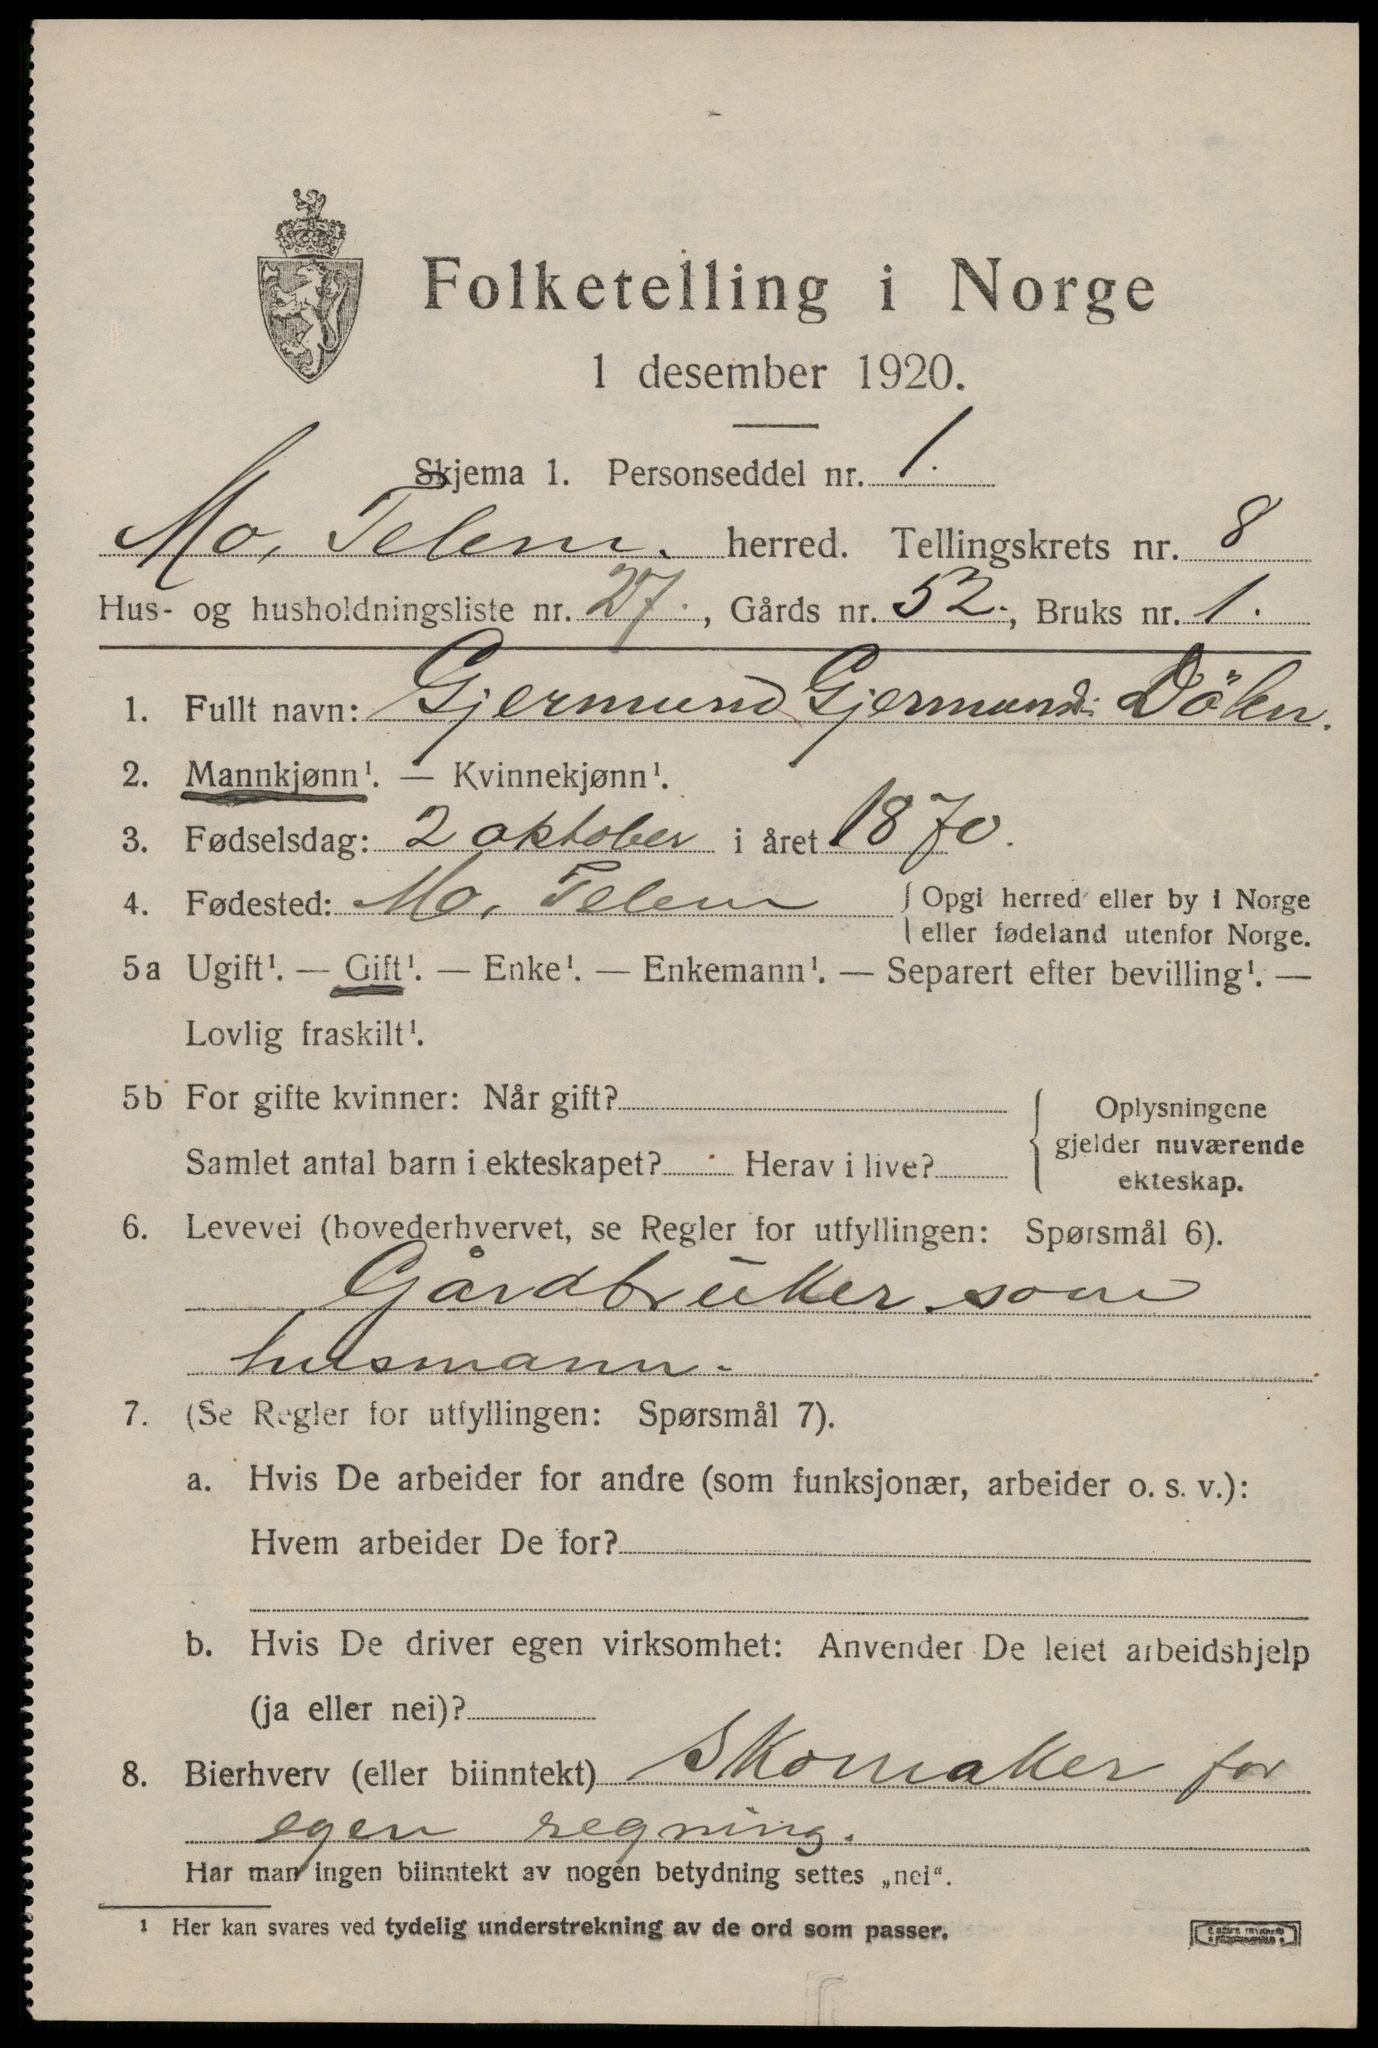 Folketelling i Norge
1 desember 1920.
Skjema 1. Personseddel nr. 1.
Mo, Telem. herred. Tellingskrets nr. 8
Hus- og husholdningsliste nr. 27., Gårds nr. 52., Bruks nr. 1.
1. Fullt navn: Gjermund Gjermunds. Dölen.
2. Mannkjønn¹. — Kvinnekjønn¹.
3. Fødselsdag: 2 oktober i året 1870.
4. Fødested: Mo, Telem { Opgi herred eller by i Norge
eller fødeland utenfor Norge.
5a Ugift¹. — Gift¹. — Enke¹. — Enkemann¹. — Separert efter bevilling¹. —
Lovlig fraskilt¹.
5b For gifte kvinner: Når gift? { Oplysningene
gjelder nuværende
Samlet antal barn i ekteskapet? Herav i live? ekteskap.
6. Levevei (hovederhvervet, se Regler for utfyllingen: Spørsmål 6).
Gårdbruker som
husmann.
7. (Se Regler for utfyllingen: Spørsmål 7).
a. Hvis De arbeider for andre (som funksjonær, arbeider o. s. v.):
Hvem arbeider De for?
b. Hvis De driver egen virksomhet: Anvender De leiet arbeidshjelp
(ja eller nei)?
8. Bierhverv (eller biinntekt) Skomaker for
egen regning.
Har man ingen biinntekt av nogen betydning settes „nei“.
¹ Her kan svares ved tydelig understrekning av de ord som passer.